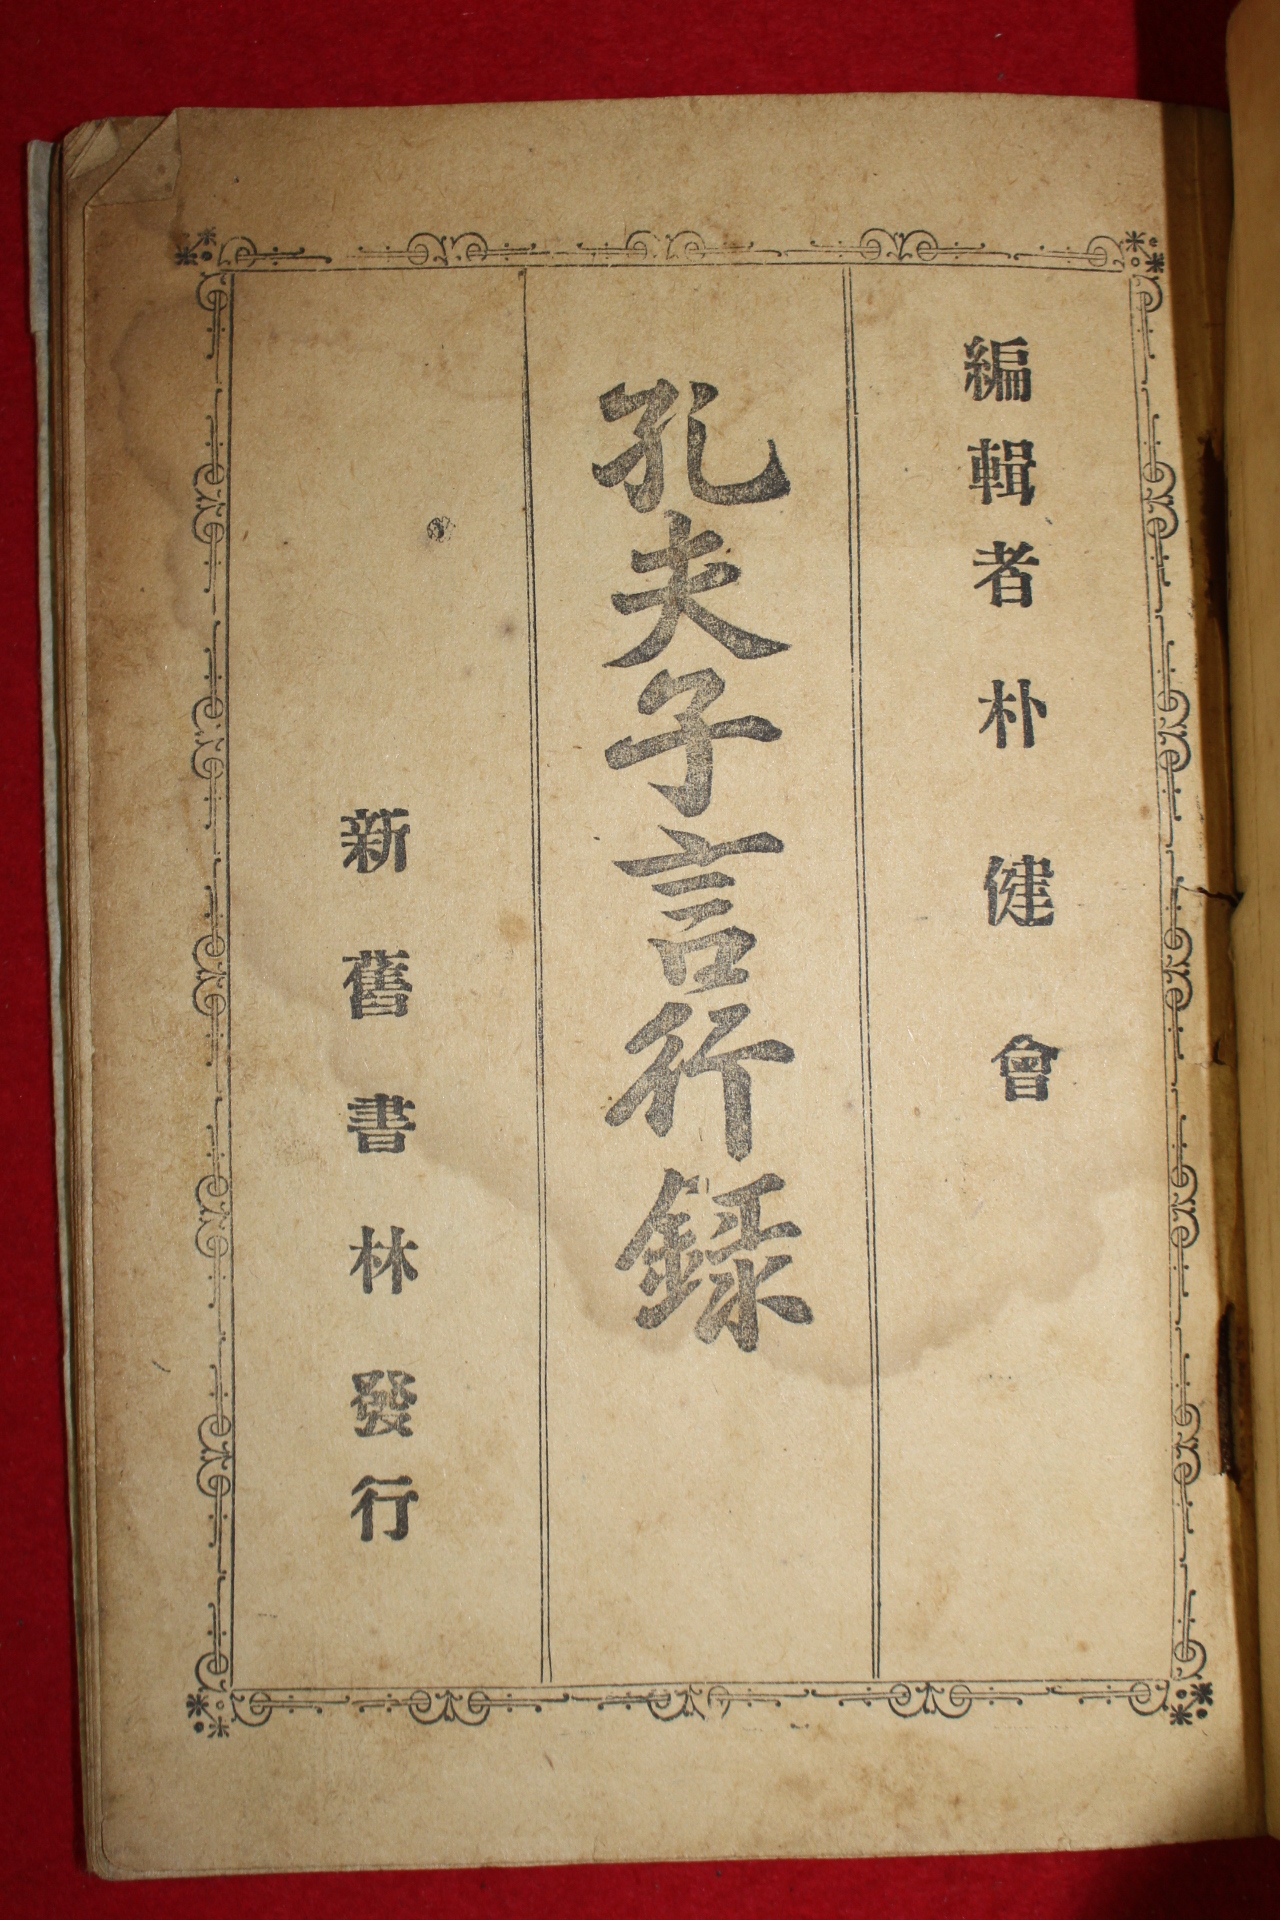 編輯者 朴健會
孔夫子言行錄
新舊書林發行